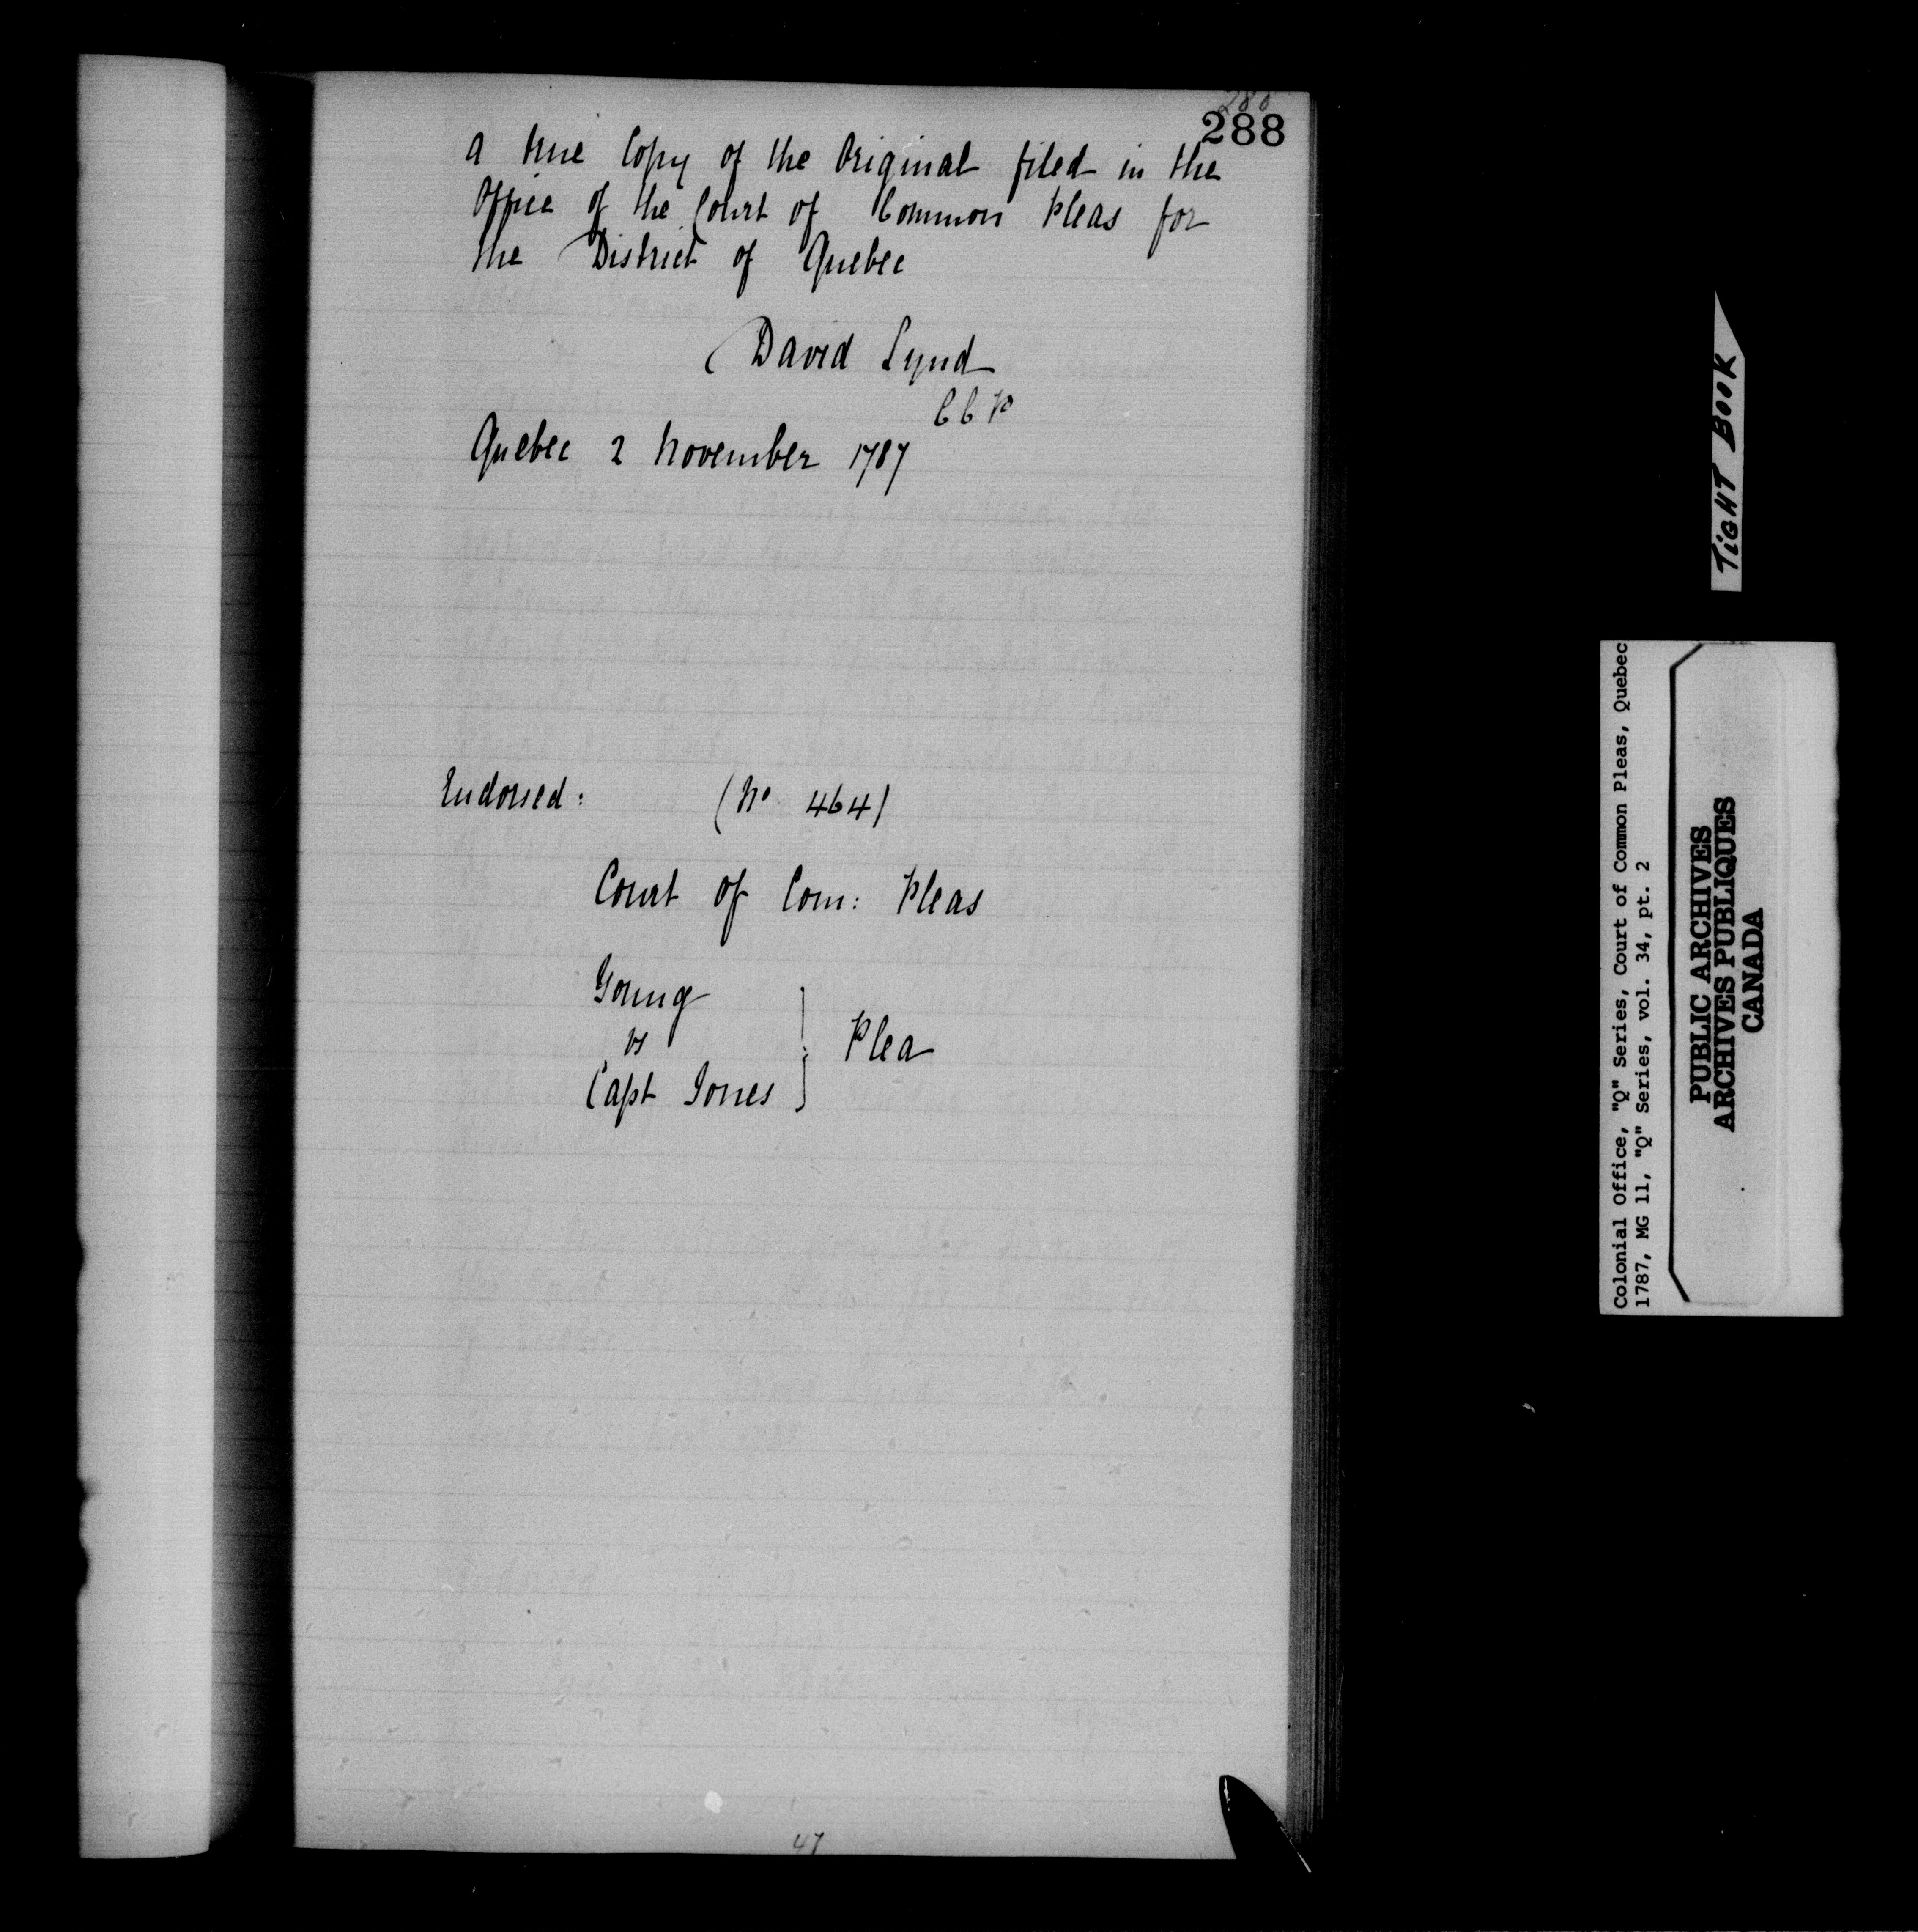 288
288
a true Copy of the Original filed in the
Office of the Court of Common Pleas for
the District of Quebec
David Lynd
C C P
Quebec 2 November 1787
Endorsed: (No 464)
Court of Com: Pleas
Young
vs
Capt Jones } Plea
47
TiGHT BOOK
Colonial Office, "Q" Series, Court of Common Pleas, Quebec
1787, MG 11, "Q" Series, vol. 34, pt. 2
PUBLIC ARCHIVES
ARCHIVES PUBLIQUES
CANADA